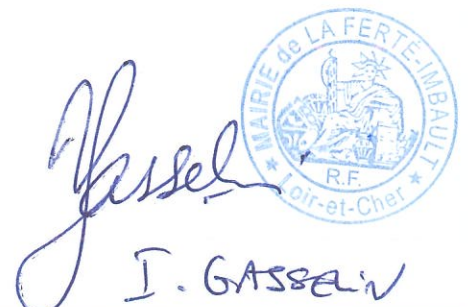 MAIRIE de LA FERTÉ-IMBAULT
R.F.
Loir-et-Cher
Gasselin
I. GASSELIN